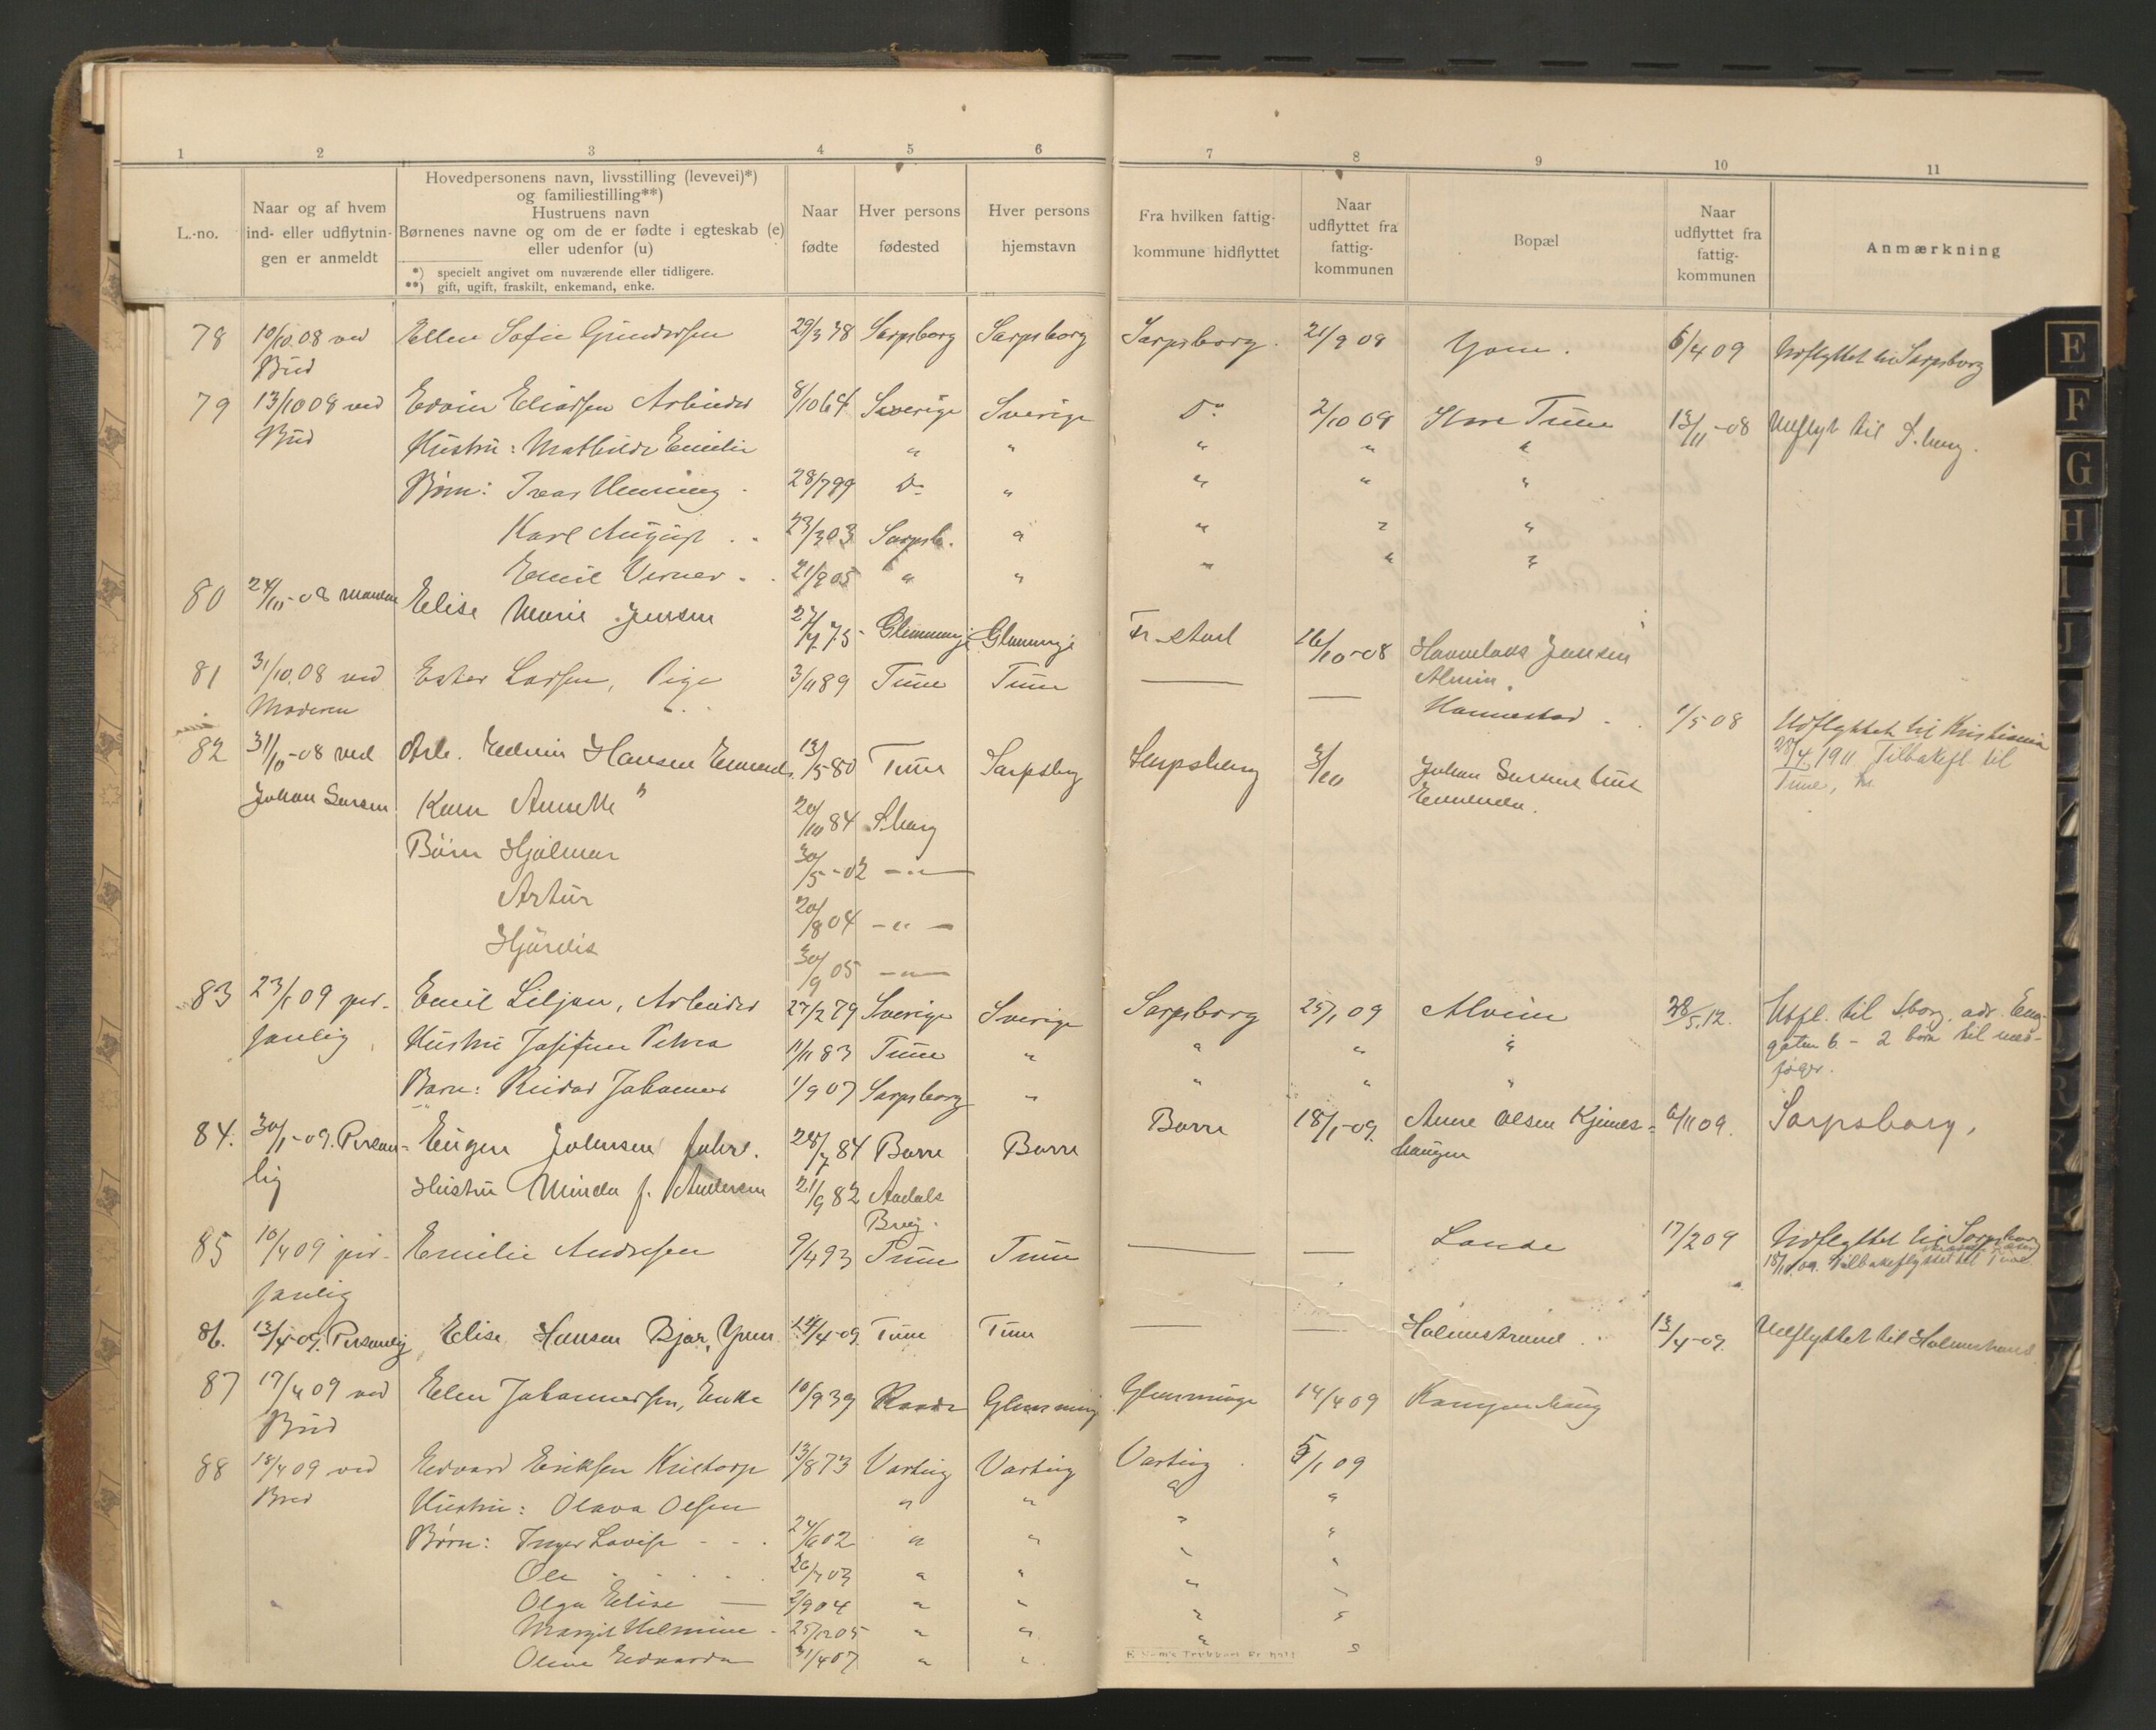 1 2 3 4 5 6 7 8 9 10 11
L.-no.
Naar og af hvem
ind- eller udflytnin-
gen er anmeldt
Hovedpersonens navn, livsstilling (levevei)*)
og familiestilling**)
Hustruens navn
Børnenes navne og om de er fødte i egteskab (e)
eller udenfor (u)
*) specielt angivet om nuværende eller tidligere.
**) gift, ugift, fraskilt, enkemand, enke.
Naar
fødte
Hver persons
fødested
Hver persons
hjemstavn
Fra hvilken fattig-
kommune hidflyttet
Naar
udflyttet fra
fattig-
kommunen
Bopæl
Naar
udflyttet fra
fattig-
kommunen
Anmærkning
78 10/10.08 ved Ellen Sofie Gundersen 29/3 38 Sarpsborg Sarpsborg Sarpsborg. 21/9 08 Yven. 6/4 09 Udflyttet til Sarpsborg
Bud
79 13/10 08 ved Edvin Eliassen Arbeider 8/10 64 Sverige Sverige Do 2/10 08 Tune 13/11-08 Udflyt til S.borg.
Bud Hustru: Mathilde Emilie " " " " "
Børn: Ivar Henning 28/7 99 Do " " " "
Karl August 23/3 03 Sarpsb. " " " "
Emil Verner 21/9 05 " " " " "
80 24/10-08 Elise Marie Jensen 27/7 75 Glemminge Glemminge Fr.stad 16/10-08 Jensen
Alvim.
81 31/10.08 ved Ester Larsen, Pige 3/11 89 Tune Tune — — Hannestad 1/5 08 Udflyttet til Kristiania
Moderen
28/4 1911 Tilbakefl. til
Tune,
82 31/10-08 ved Arb. Edvin Hansen 13/5 80 Tune Sarpsborg Sarpsborg 3/10 Johan Larsen
Johan Larsen Karen Annette " 20/10 84 S.borg
Børn Hjalmar 30/5-02 —"—
Artur 20/8 04 —"—
Hjørdis 30/9 05 —"—
83 23/1 09 per- Emil Liljan, Arbeider 27/2 79 Sverige Sverige Sarpsborg 25/1 09 Alvim 28/5.12. Utfl. til Sborg. adr. Eng-
sonlig Hustru Josefine Petra 11/11 83 Tune " " " " gaten 6 - 2 børn til med-
Barn: Reidar Johannes 1/9 07 Sarpsborg " " " "
84. 30/1-09. Person- Eugen Johnsen 28/7 84 Borre Borre Borre 18/1-09. Anne Olsen Kjennes- 6/11 09. Sarpsborg,
lig Hustru Minda f. Andersen 21/9 82 Aadals haugen
Brug.
85 10/4 09 per- Emilie Andresen 9/4 93 Tune Tune — — Lande 17/2 09 Udflyttet til Sarpsborg
sonlig
18/11.09. Tilbakeflyttet til Tune
86. 13/4-09. Personlig Elise Hansen Bjor, Yven 14/4-09. Tune Tune — — Holmstrand 13/4-09. Udflyttet til Holmstrand
87 17/4 09 ved Elen Johannessen, Enke 10/9 39 Raade Glemminge Glemminge 14/4 09
Bud
88 18/4 09 ved Edvard Eriksen 13/8 73 Varteig Varteig Varteig 5/1 09
Bud Hustru: Olava Olsen " " " "
Børn: Inger Lovise 24/6 02 " " " "
Ole 26/7 03 " " " "
Olga Elise — 2/9 04 " " " "
Margit Helmine 25/12 05 " " " "
Oline Edvarda 31/4 07 " " " "
E
F
G
H
I
J